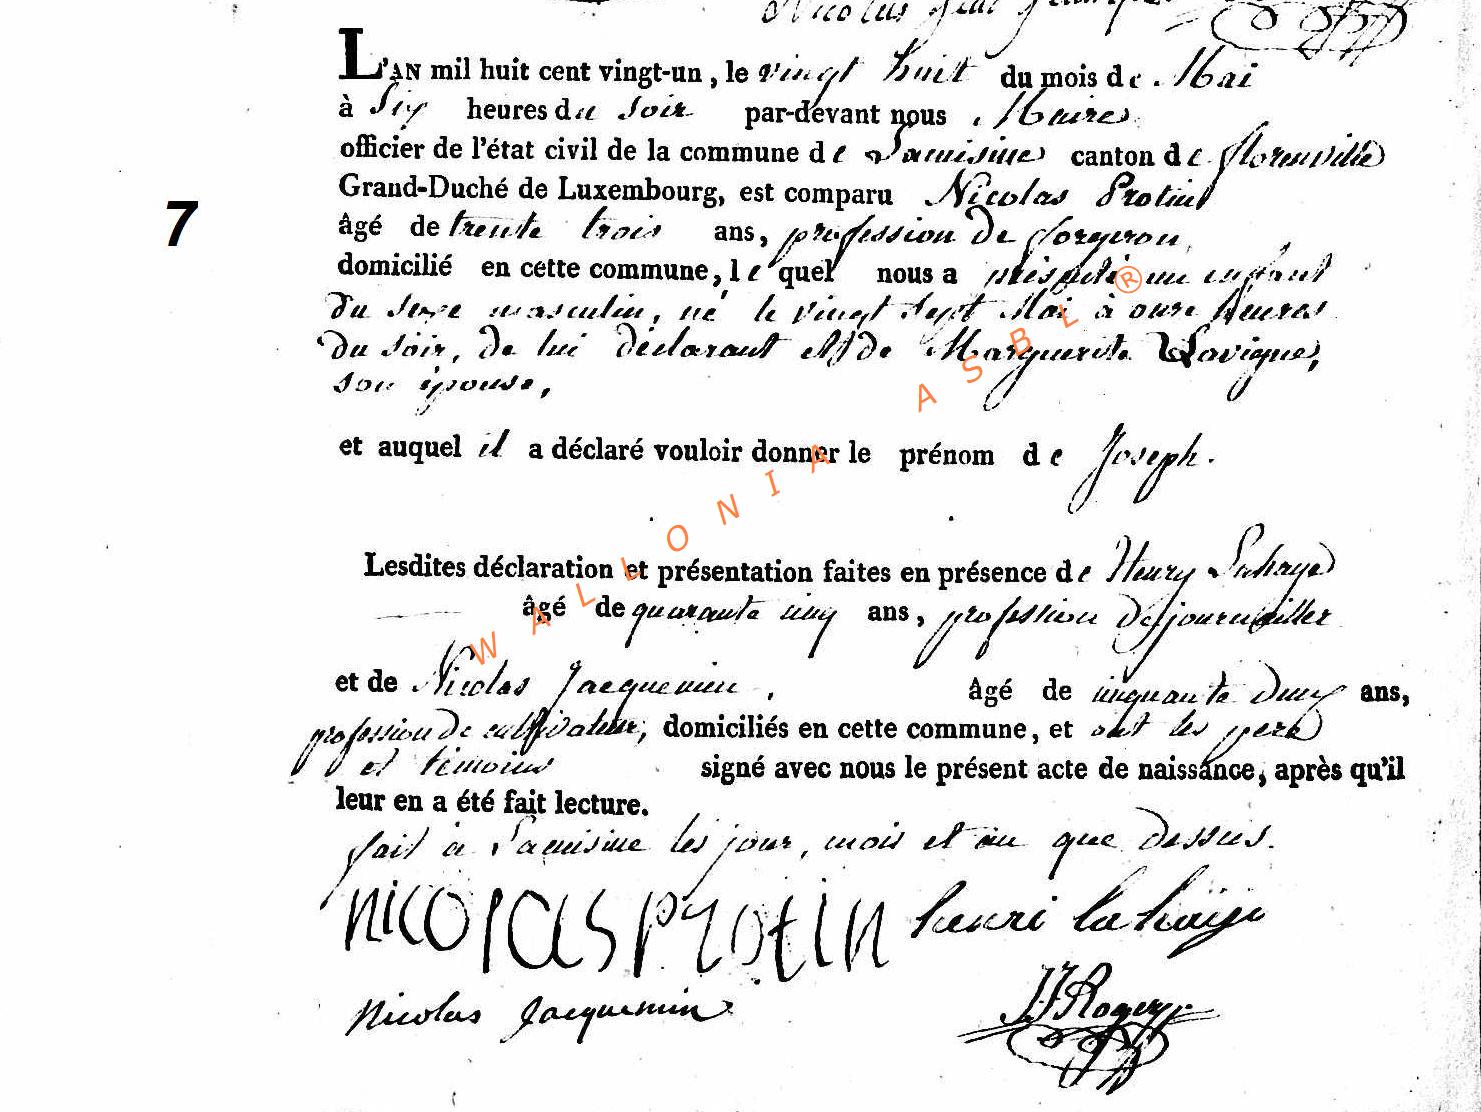 Nicolas
L'AN mil huit cent vingt-un, le vingt huit du mois de Mai
à Six heures du Soir par-devant nous Maire
officier de l'état civil de la commune de Lacuisine canton de florenville
Grand-Duché de Luxembourg, est comparu Nicolas Protin
âgé de trente trois ans, profession de forgeron
domicilié en cette commune, le quel nous a présenté un enfant
du sexe masculin, né le vingt sept Mai à onze heures
du soir, de lui déclarant et de Marguerite Lavigne,
son épouse,
et auquel il a déclaré vouloir donner le prénom de Joseph.
Lesdites déclaration et présentation faites en présence de Henry Lahaye
âgé de quarante cinq ans, profession de journaillier
et de Nicolas Jacquemin, âgé de cinquante deux ans,
profession de cultivateur, domiciliés en cette commune, et ont les père
et témoins signé avec nous le présent acte de naissance, après qu'il
leur en a été fait lecture.
fait à Lacuisine les jour, mois et an que dessus.
nicolas protin henri lahaije
Nicolas Jacquemin
Rogery
7
WALLONIA ASBL ®